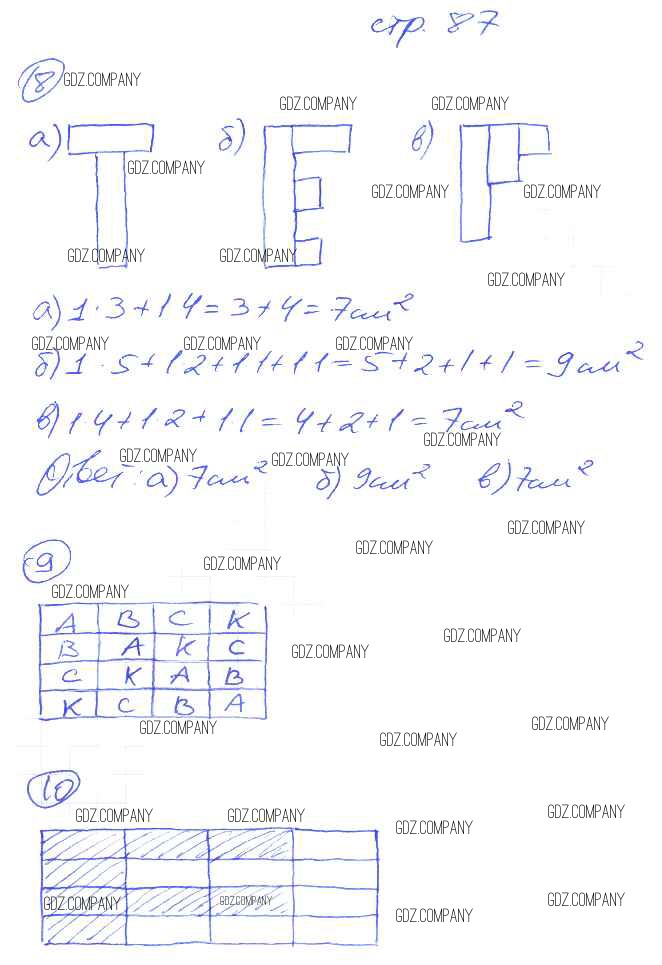 стр. 87
8 GDZ.COMPANY
GDZ.COMPANY GDZ.COMPANY
а) б) в)
GDZ.COMPANY
GDZ.COMPANY GDZ.COMPANY
GDZ.COMPANY GDZ.COMPANY
GDZ.COMPANY
а) 1·3+1 4=3+4=7см²
GDZ.COMPANY GDZ.COMPANY GDZ.COMPANY
б) 1·5+1 2+1 1+1 1=5+2+1+1=9см²
в) 1 4+1·2+1 1=4+2+1=7см²
GDZ.COMPANY
GDZ.COMPANY GDZ.COMPANY
Ответ: а) 7см² б) 9см² в) 7см²
GDZ.COMPANY
GDZ.COMPANY
9
GDZ.COMPANY
GDZ.COMPANY
А В С К
В А К С
С К А В
К С В А
GDZ.COMPANY
GDZ.COMPANY
GDZ.COMPANY
GDZ.COMPANY
GDZ.COMPANY
10
GDZ.COMPANY GDZ.COMPANY GDZ.COMPANY
GDZ.COMPANY
GDZ.COMPANY GDZ.COMPANY GDZ.COMPANY
GDZ.COMPANY